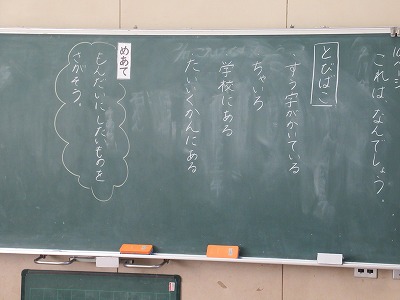 これは、なんでしょう。
とびばこ
・すう字がかいている
・ちゃいろ
・学校にある
・たいいくかんにある
めあて
もんだいにしたいものを
さがそう。